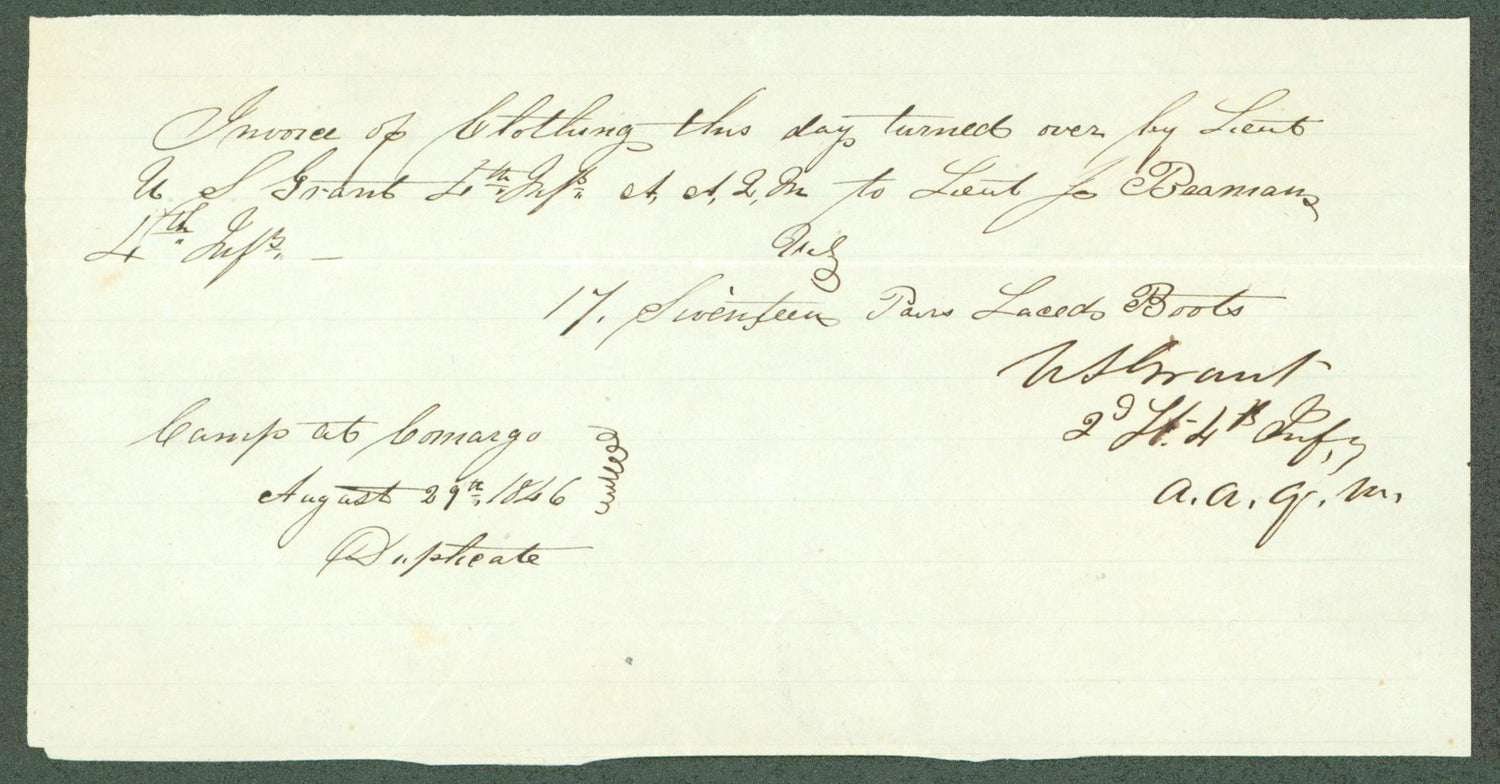 Invoice of Clothing this day turned over by Lieut
U S Grant 4th Inf. A, A, Q, M to Lieut J Beaman
4th Inf. —
Viz
17. Seventeen Pairs Laced Boots
U S Grant
2d Lt. 4th Inf,y
a. a. q. m.
Camp at Comargo
August 29th 1846
Duplicate